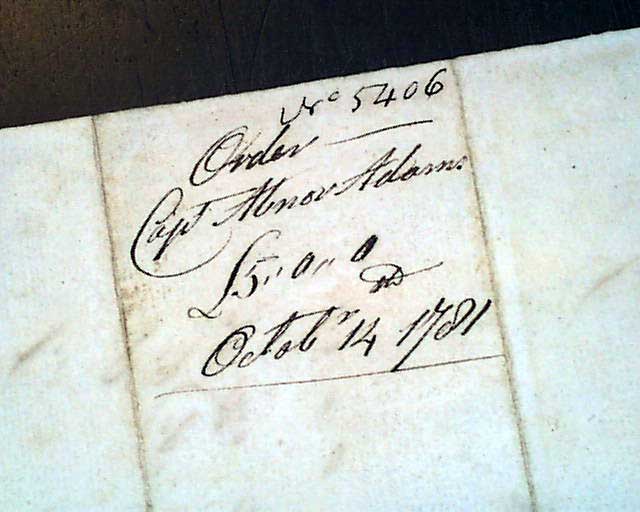 No 5406
Order
Capt Abnor Adams
£5 ,, 0 ,, 0
Octobr 14 1781